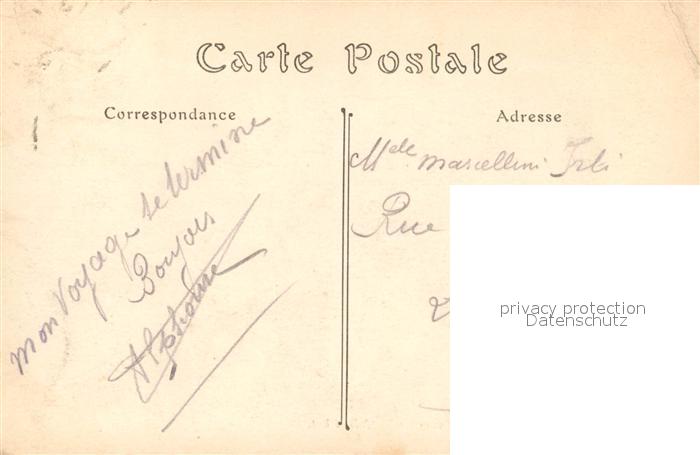 Carte Postale
Correspondance
Adresse
mon voyage se termine
Bonjour
Alphonse
Melle marcelline
Rue
privacy protection
Datenschutz